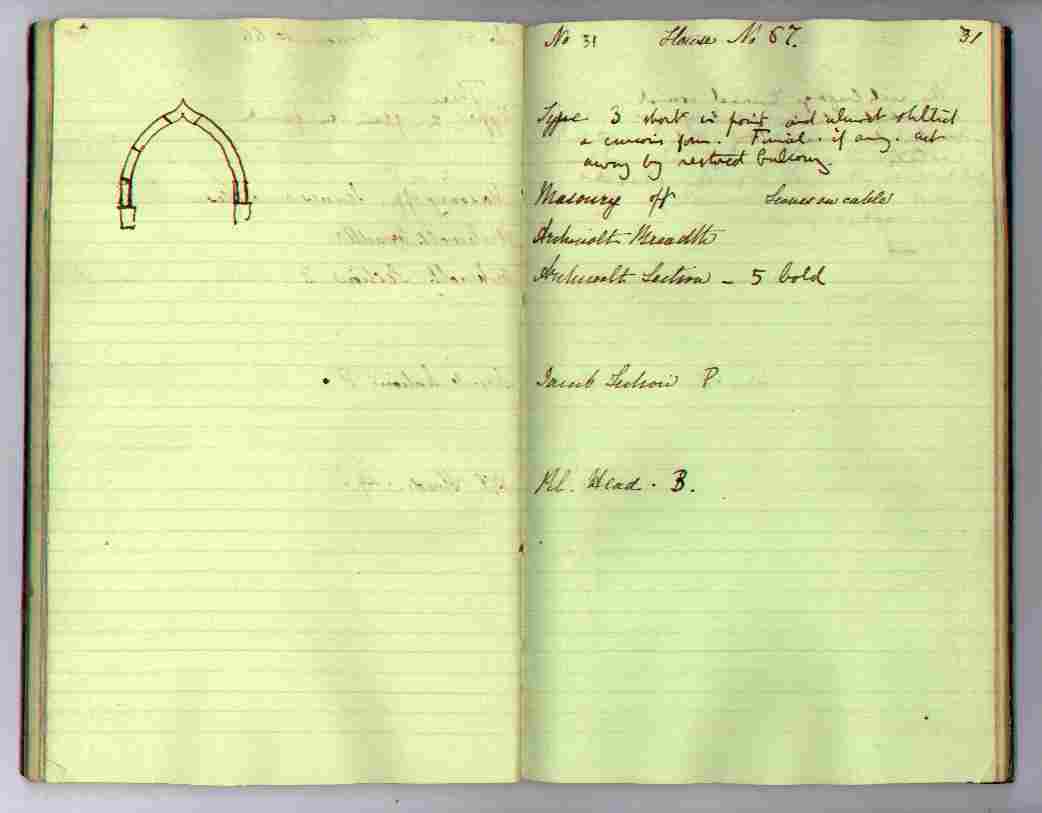 No 31 House No 67. 31
Type 3 short in point and almost stilted
a curious form. Finial. if any. cut
away by restored balcony.
Masonry off Leaves on cable
Archivolt Breadth
Archivolt Section - 5 bold
Jamb Section P.
Pl. Head. B.